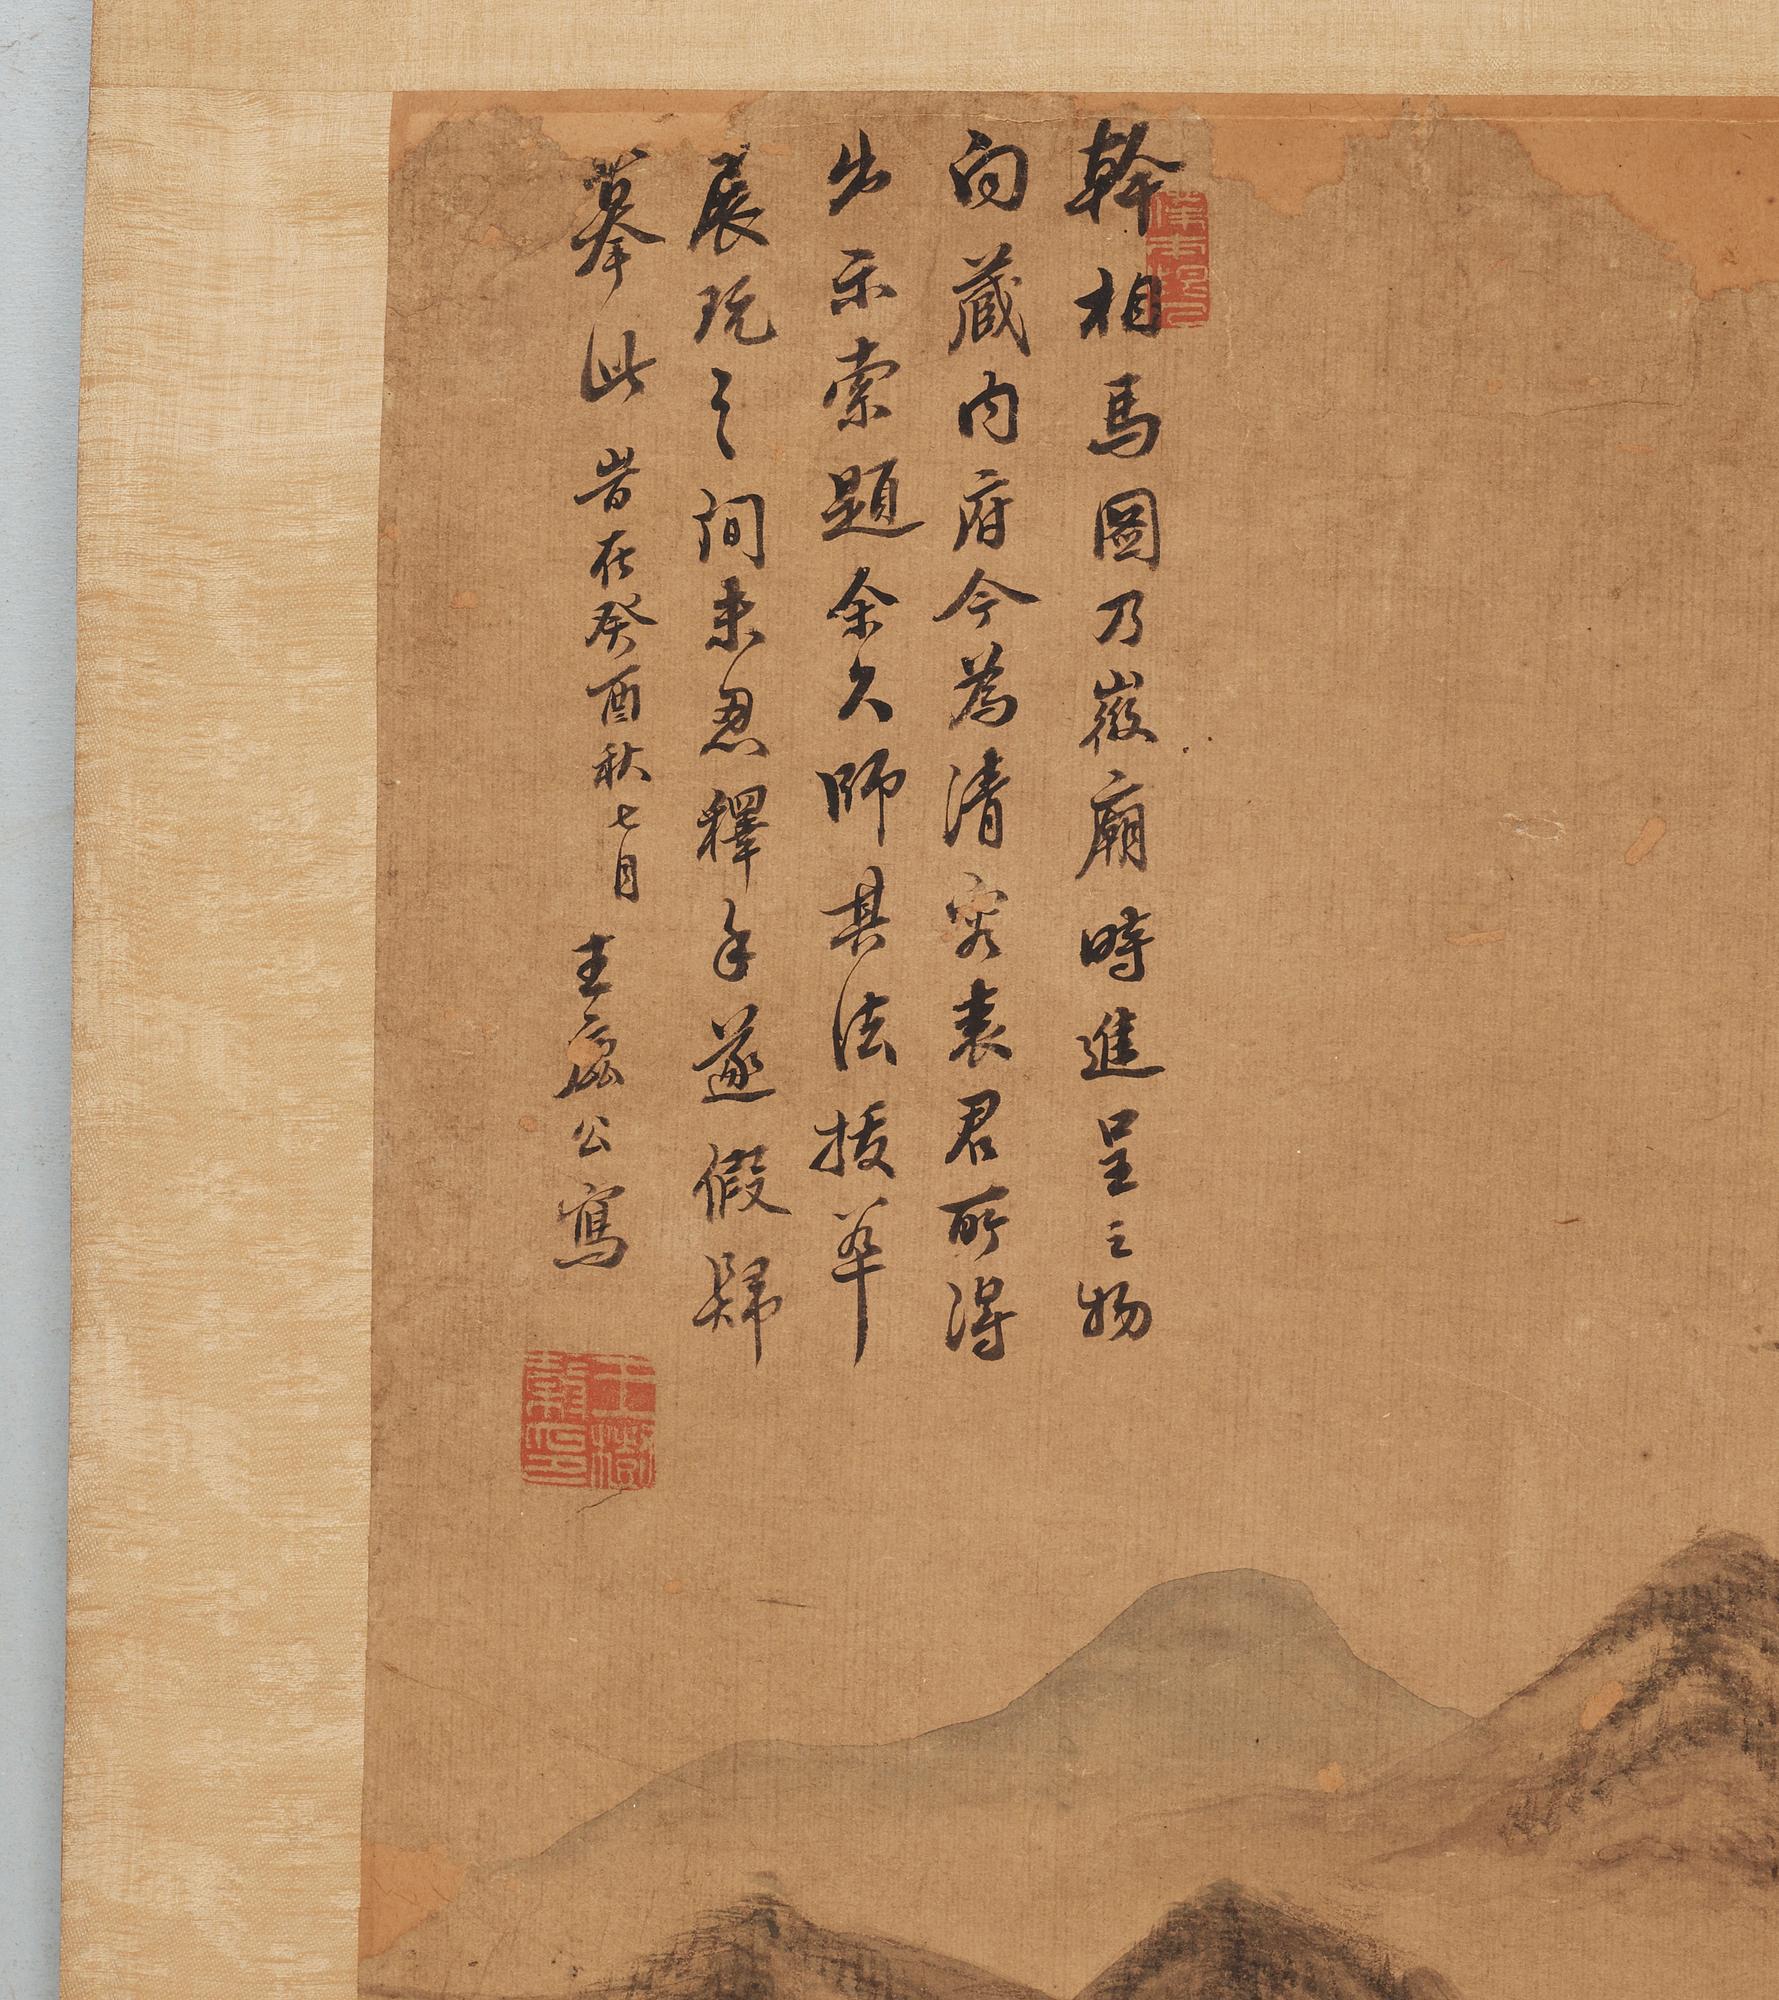 幹相馬圖乃徽廟時進呈之物
向藏內府今為清容袁君所得
出示索題余久師其法援筆
展玩之間未忍釋手遂假歸
摹此旹在癸酉秋七月王鹿公寫
王樹穀印